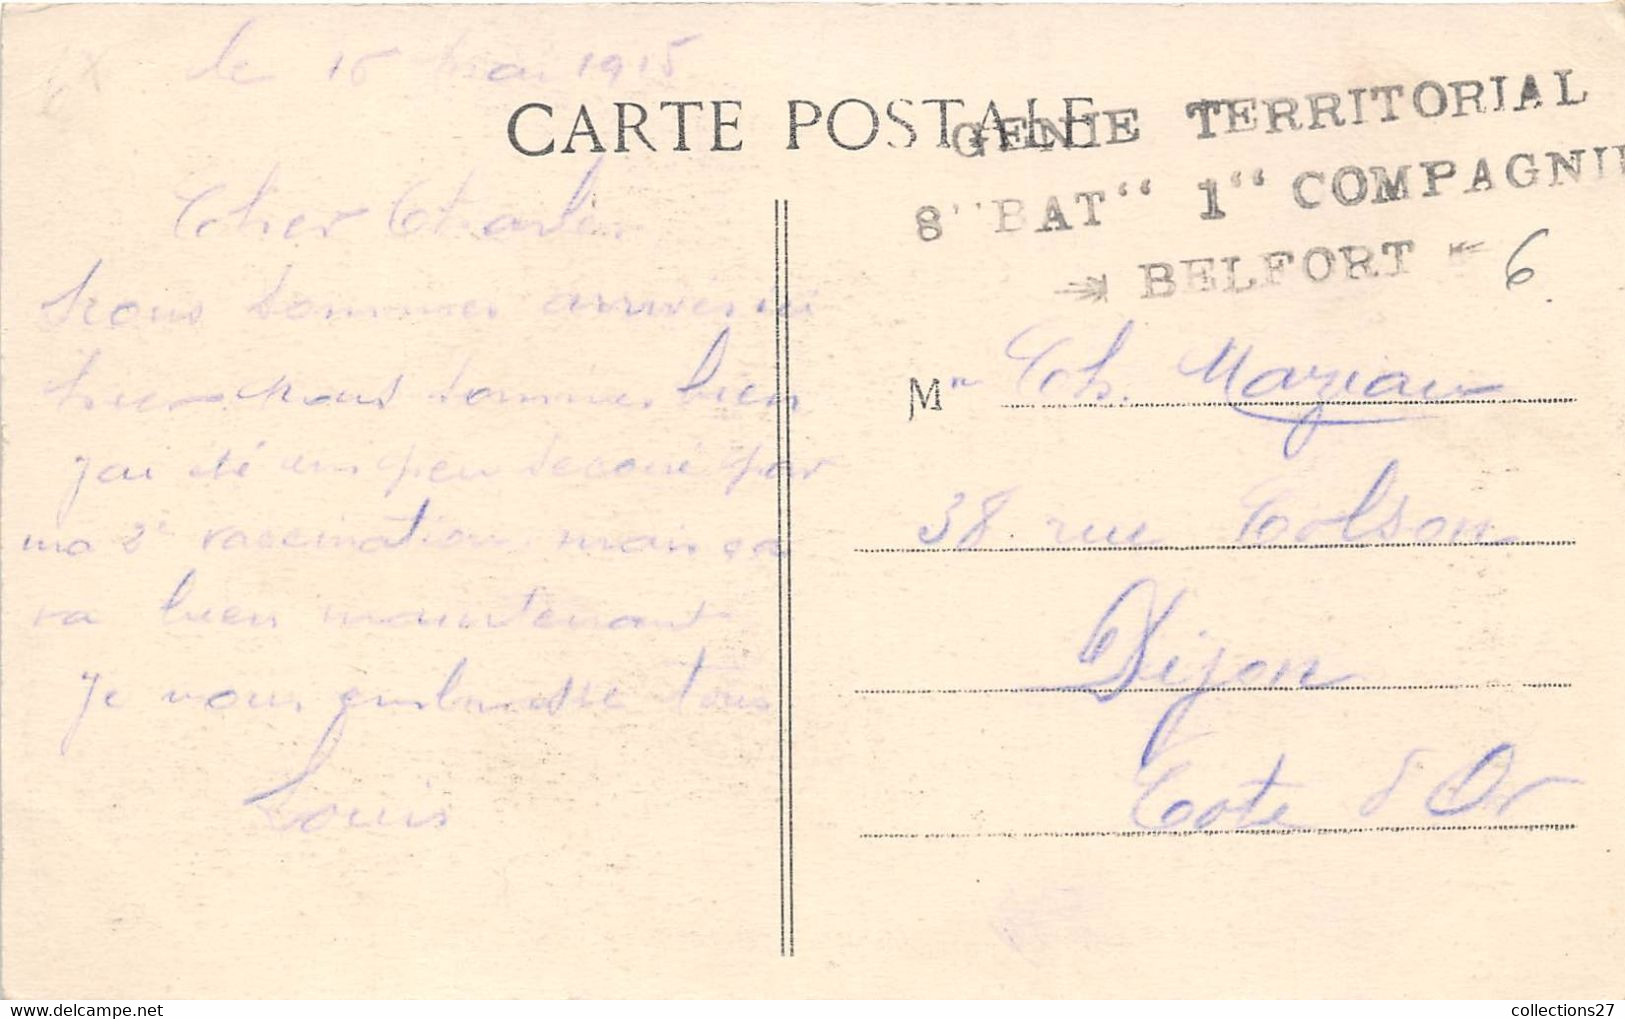 le 16 mai 1915
CARTE POSTALE
GENIE TERRITORIAL
8" BAT" 1" COMPAGNIE
BELFORT
6
Cher Charles
Nous sommes arrivés ici
hier nous sommes bien
j'ai été un peu secoué par
ma 2e vaccination mais ça
va bien maintenant
Je vous embrasse tous
Louis
M Ch.
38 rue Colson
Dijon
Cote d'Or
collections27